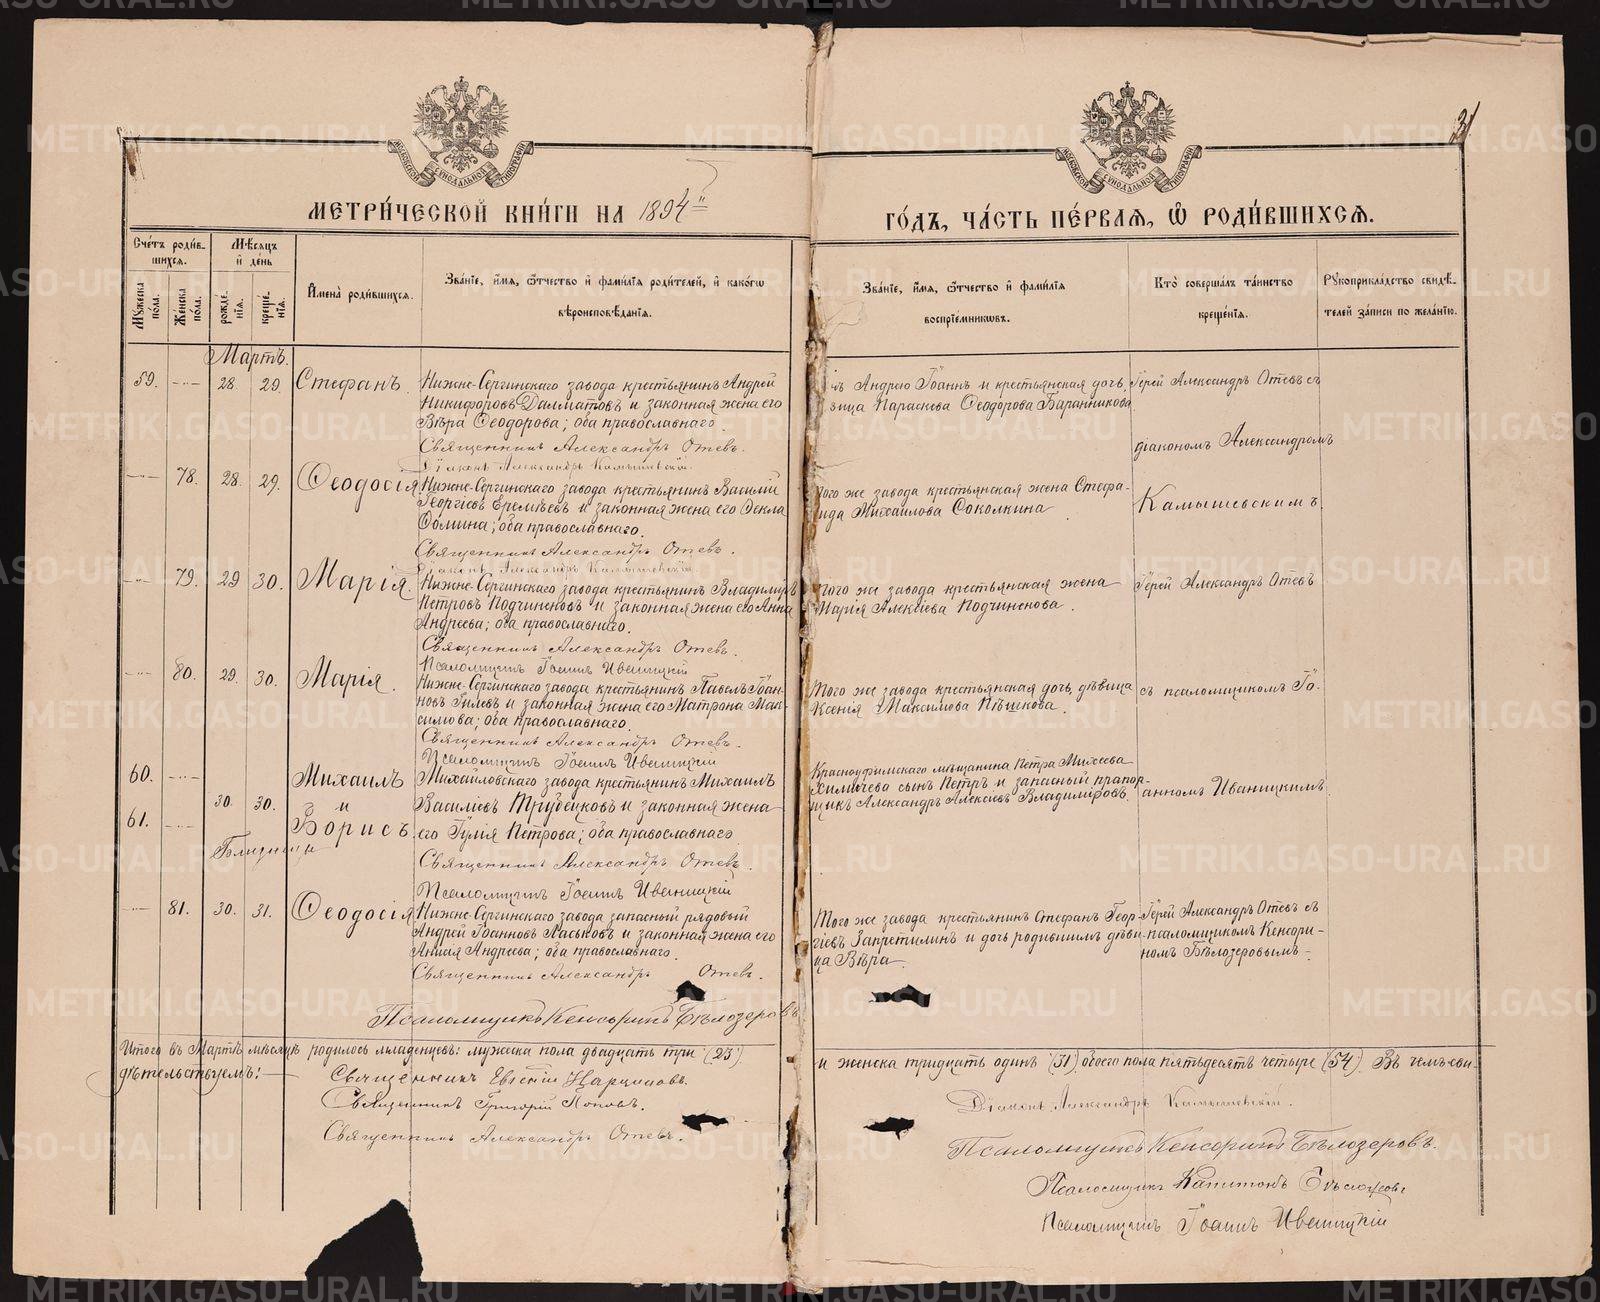 МЕТРИ́ЧЕСКОЙ КНИ́ГИ НА 1894й
ГО́ДЪ, ЧА́СТЬ ПЕ́РВАЯ, Ѽ РОДИ́ВШИХСЯ.
31
МОСКОВСКОЙ СУНОДАЛЬНОЙ ТИПОГРАФІИ
МОСКОВСКОЙ СУНОДАЛЬНОЙ ТИПОГРАФІИ
Сче́тъ роди́в-
шихся.
Мѣ́сяцъ
и҆ де́нь
Му́жеска по́ла.
Же́нска по́ла.
рожде́-
нїя.
креще́-
нїя.
И҆мена̀ роди́вшихся.
Зва́нїе, и҆́мя, ѻ҆́тчество и҆ фами́лїя роди́телей, и҆ како́гѡ
вѣроисповѣ́данїя.
Зва́нїе, и҆́мя, ѻ҆́тчество и҆ фами́лїя
воспрїе́мникѡвъ.
Кто̀ соверша́лъ та́инство
креще́нїя.
Рꙋкоприкла́дство свидѣ́-
телей за́писи по жела́нїю.
Мартъ.
59. -·- 28 29. Стефанъ.
Нижне-Сергинскаго завода крестьянинъ Андрей
Никифоровъ Далматовъ и законная жена его
Вѣра Ѳеодорова; оба православнаго.
Священникъ Александръ Отевъ.
Діаконъ Александръ Камышевскій.
Андрею Іоаннъ и крестьянская дочь,
вица Параскева Ѳеодорова Баранникова
Іерей Александръ Отевъ съ
діакономъ Александромъ
Камышевскимъ.
-·- 78. 28. 29. Ѳеодосія.
Нижне-Сергинскаго завода крестьянинъ Василій
Георгіевъ Еремѣевъ и законная жена его Ѳекла
Ѳомина; оба православнаго.
Священникъ Александръ Отевъ.
Діаконъ Александръ Камышевскій.
Того же завода крестьянская жена Стефа-
нида Михаилова Соколкина
-·- 79. 29 30. Марія.
Нижне-Сергинскаго завода крестьянинъ Владиміръ
Петровъ Подчиненовъ и законная жена его Анна
Андреева; оба православнаго.
Священникъ Александръ Отевъ.
Псаломщикъ Іоаннъ Иваницкій
Того же завода крестьянская жена
Марія Алексіева Подчиненова.
Іерей Александръ Отевъ
-·- 80. 29. 30. Марія.
Нижне-Сергинскаго завода крестьянинъ Павелъ Іоан-
новъ Гилевъ и законная жена его Матрона Мак-
симова; оба православнаго.
Священникъ Александръ Отевъ.
Псаломщикъ Іоаннъ Иваницкій
Того же завода крестьянская дочь, дѣвица
Ксенія Максимова Пѣшкова.
съ псаломщикомъ Іо-
60. -·- Михаилъ
30. 30. и
61. -·- Борисъ.
Близнецы
Михайловскаго завода крестьянинъ Михаилъ
Василіевъ Трубецковъ и законная жена
его Іулія Петрова; оба православнаго
Священникъ Александръ Отевъ.
Псаломщикъ Іоаннъ Иваницкій
Красноуфимскаго мѣщанина Петра Михеева
Химичева сынъ Петръ и запасный прапор-
щикъ Александръ Алексіевъ Владиміровъ.
анномъ Иваницкимъ
-·- 81. 30. 31. Ѳеодосія
Нижне-Сергинскаго завода запасный рядовый
Андрей Іоанновъ Ласьковъ и законная жена его
Анисія Андреева; оба православнаго.
Священникъ Александръ Отевъ.
Псаломщикъ Кенсоринъ Бѣлозеровъ
Того же завода крестьянинъ Стефанъ Геор-
гіевъ Запретилинъ и дочь родившимъ дѣви-
ца Вѣра.
Іерей Александръ Отевъ съ
псаломщикомъ Кенсори-
номъ Бѣлозеровымъ.
Итого въ Мартѣ мѣсяцѣ родилось младенцевъ: мужеска пола двадцать три (23)
и женска тридцать одинъ (31) обоего пола пятьдесятъ четыре (54). Въ чемъ сви-
дѣтельствуемъ:
Священникъ Евгеній Нарциссовъ.
Священникъ Григорій Поповъ.
Священникъ Александръ Отевъ.
Діаконъ Александръ Камышевскій.
Псаломщикъ Кенсоринъ Бѣлозеровъ.
Псаломщикъ Капитонъ
Псаломщикъ Іоаннъ Иваницкій
METRIKI.GASO-URAL.RU